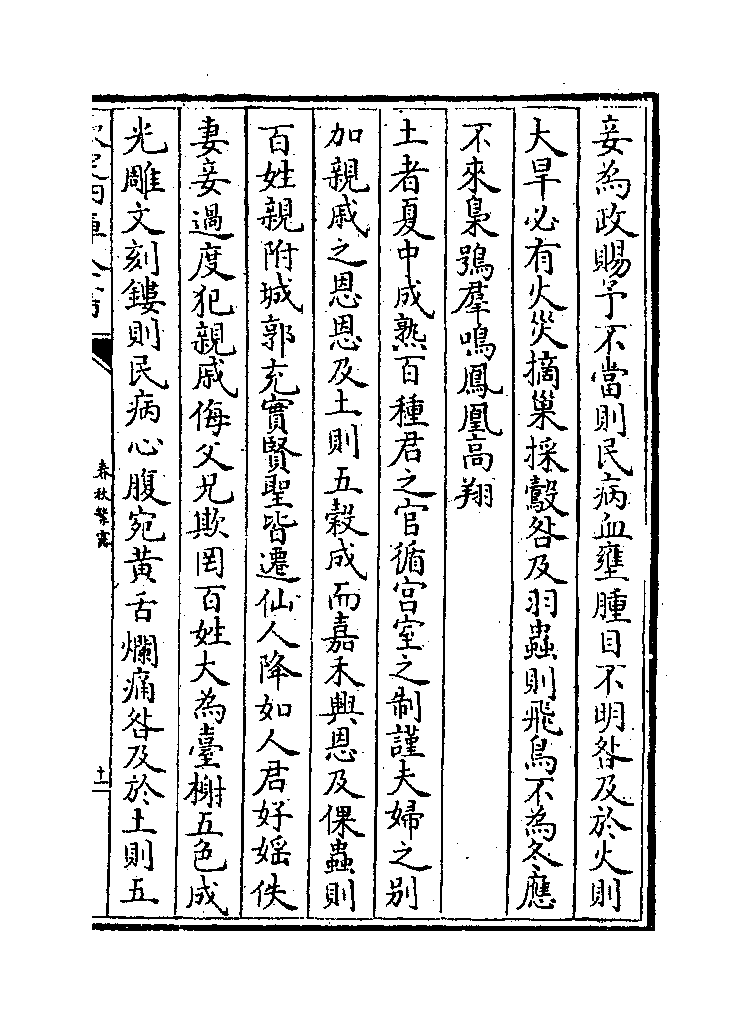 妾為政賜予不當則民病血壅腫目不明咎及於火則
大旱必有火災摘巢採鷇咎及羽蟲則飛鳥不為冬應
不來梟鴞羣鳴鳳凰高翔
土者夏中成熟百種君之官循宫室之制謹夫婦之别
加親戚之恩恩及土則五榖成而嘉禾興恩及倮蟲則
百姓親附城郭充實賢聖皆遷仙人降如人君好婬佚
妻妾過度犯親戚侮父兄欺罔百姓大為臺榭五色成
光雕文刻鏤則民病心腹宛黄舌爛痛咎及於土則五
春秋繁露
十一